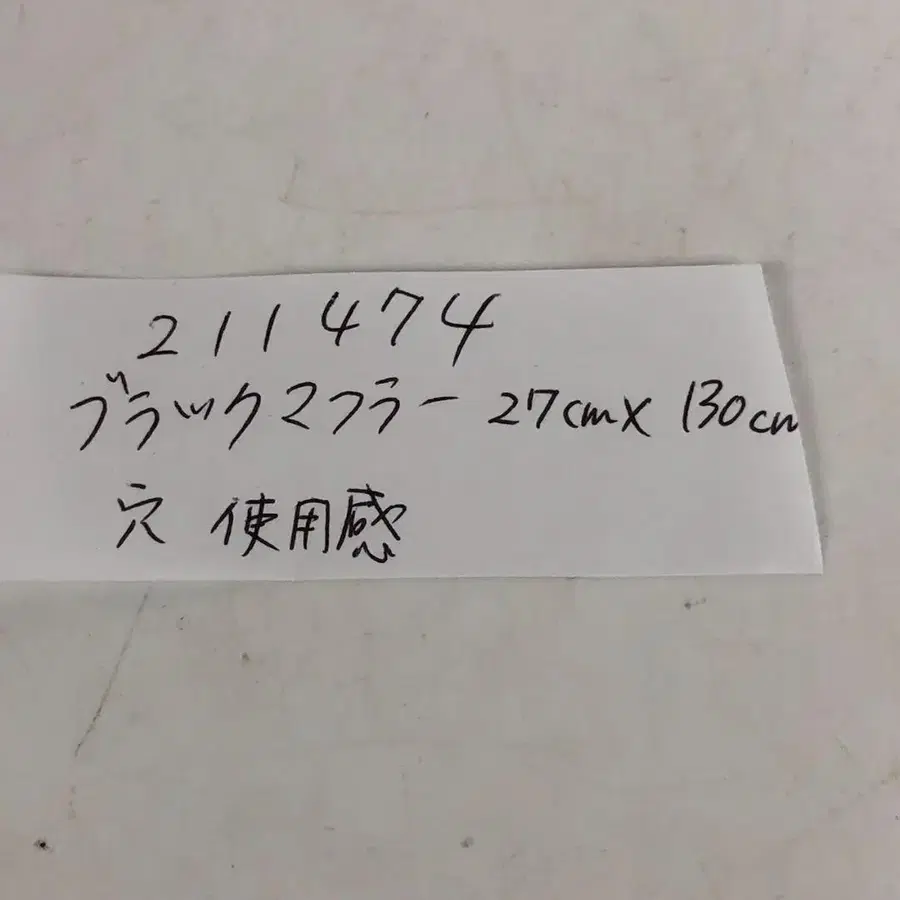 211474
ブラックマフラー 27cm×130cm
穴 使用感